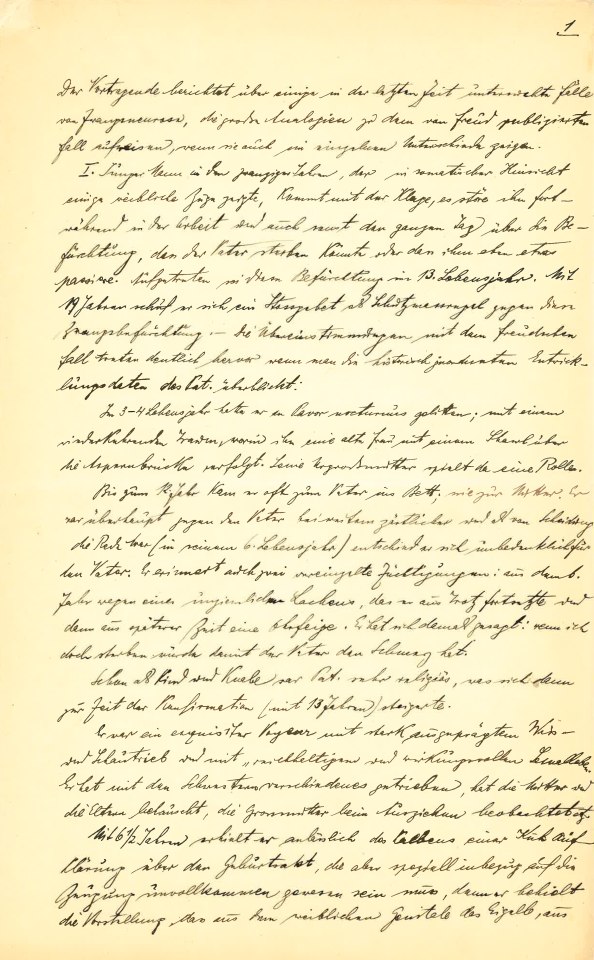 1
Der Vortragende berichtet über einige in der letzten Zeit untersuchte Fälle
von Zwangsneurose, die große Analogien zu dem von Freud publizierten
Fall aufweisen, wenn sie auch im einzelnen Unterschiede zeigen.
I. Junger Mann in den zwanziger Jahren, der in somatischer Hinsicht
einige weibliche Züge zeigte, kommt mit der Klage, es störe ihn fort-
während in der Arbeit und auch sonst den ganzen Tag über die Be-
fürchtung, dass der Vater sterben könnte oder dass ihm eben etwas
passiere. Aufgetreten ist diese Befürchtung im 13. Lebensjahr. Mit
19 Jahren schuf er sich ein Stossgebet als Schutzmassregel gegen diese
Zwangsbefürchtung. – Die Übereinstimmungen mit dem Freudschen
Fall treten deutlich hervor wenn man die historisch geordneten Entwick-
lungsdaten des Pat. überblickt:
Im 3–4 Lebensjahr hatte er an Pavor nocturnus gelitten; mit einem
wiederkehrenden Traum, worin ihn eine alte Frau mit einem Shawl über
die Aspernbrücke verfolgt. Seine Urgrossmutter spielt da eine Rolle.
Bis zum 12. Jahr kam er oft zum Vater ins Bett, nie zur Mutter. Er
war überhaupt gegen den Vater bei weitem zärtlicher und als von Scheidung
die Rede war (in seinem 6. Lebensjahr) entschied er sich unbedenklich für
den Vater. Er erinnert auch zwei vereinzelte Züchtigungen: aus dem 6.
Jahr wegen eines ungeziemlichen Lachens, das er aus Trotz fortsetzte und
dann aus späterer Zeit eine Ohrfeige. Er hat sich damals gesagt: wenn ich
doch sterben würde damit der Vater den Schmerz hat.
Schon als Kind und Knabe war Pat. sehr religiös, was sich dann
zur Zeit der Konfirmation (mit 13 Jahren) steigerte.
Er war ein exquisiter Voyeur mit stark ausgeprägtem Wiss-
und Schautrieb und mit „reichhaltigem und wirkungsvollem Sexualleben.
Er hat mit den Schwestern verschiedenes getrieben, hat die Mutter und
die Eltern belauscht, die Grossmutter beim Ausziehen beobachtet etz.
Mit 6½ Jahren erhielt er anlässlich des Kalbens einer Kuh Auf-
klärung über den Geburtsakt, die aber speziell inbezug auf die
Zeugung unvollkommen gewesen sein muss, denn er behielt
die Vorstellung, dass aus dem weiblichen Genitale das Eigelb, aus